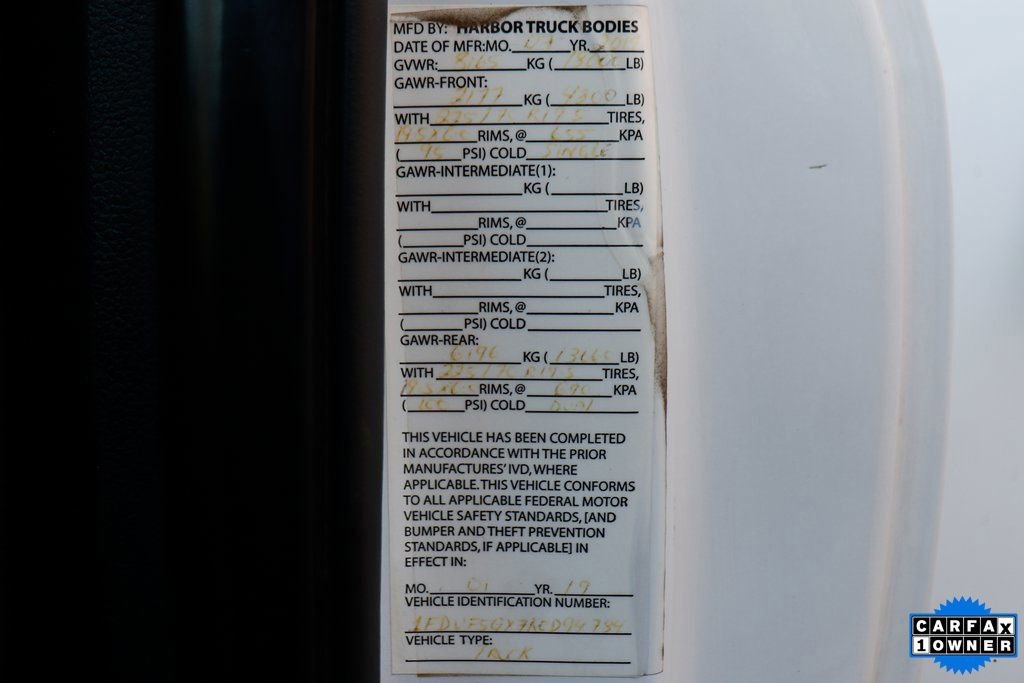 MFD BY: HARBOR TRUCK BODIES
DATE OF MFR:MO. YR.
GVWR: KG ( LB)
GAWR-FRONT:
2177 KG ( LB)
WITH 225/70 R19.5 TIRES,
RIMS, @ 655 KPA
( 95 PSI) COLD SINGLE
GAWR-INTERMEDIATE(1):
KG ( LB)
WITH TIRES,
RIMS, @ KPA
( PSI) COLD
GAWR-INTERMEDIATE(2):
KG ( LB)
WITH TIRES,
RIMS, @ KPA
( PSI) COLD
GAWR-REAR:
6196 KG ( 13660 LB)
WITH 225/70 R19.5 TIRES,
RIMS, @ 690 KPA
( 100 PSI) COLD DUAL
THIS VEHICLE HAS BEEN COMPLETED
IN ACCORDANCE WITH THE PRIOR
MANUFACTURES' IVD, WHERE
APPLICABLE. THIS VEHICLE CONFORMS
TO ALL APPLICABLE FEDERAL MOTOR
VEHICLE SAFETY STANDARDS, [AND
BUMPER AND THEFT PREVENTION
STANDARDS, IF APPLICABLE] IN
EFFECT IN:
MO. 01 YR. 19
VEHICLE IDENTIFICATION NUMBER:
VEHICLE TYPE:
CARFAX
1 OWNER